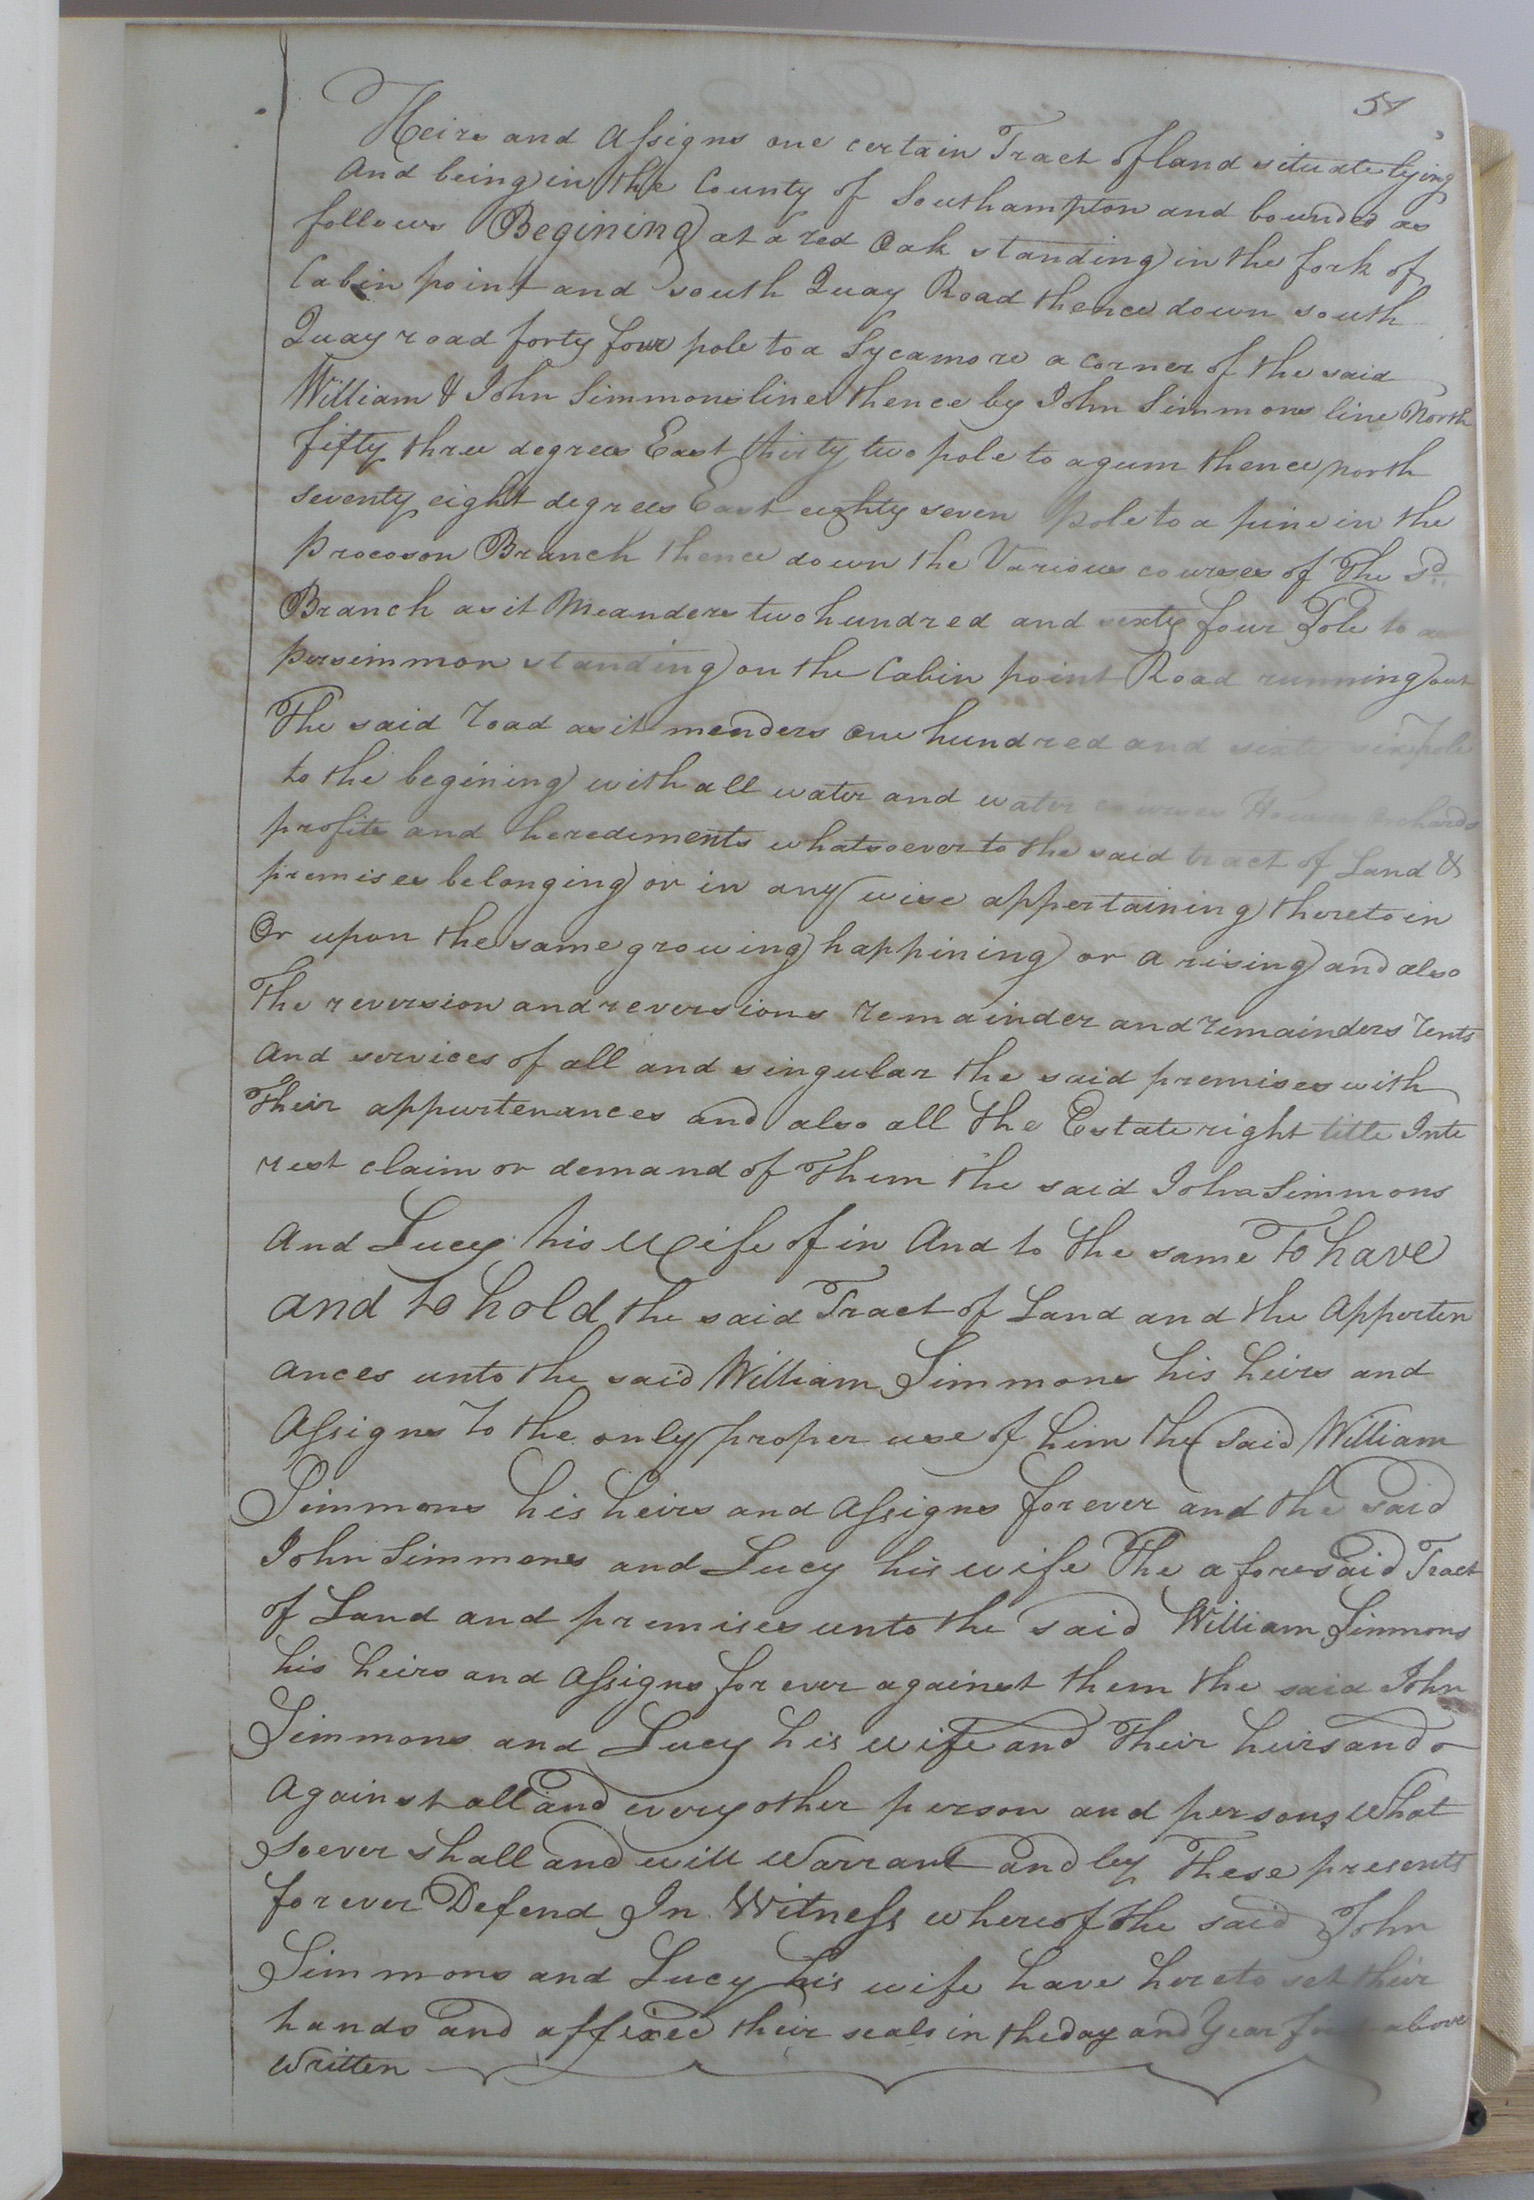 51
Heirs and assigns one certain Tract of land situate lying
And being in the County of Southampton and bounded as
follows Begining at a red Oak standing in the fork of
Cabin point and south Quay Road thence down south
Quay road forty four pole to a Sycamore a corner of the said
William & John Simmons line thence by John Simmons line North
fifty three degrees East thirty two pole to a gum thence north
seventy eight degrees East eighty seven pole to a pine in the
procoson Branch thence down the Various courses of The sd.
Branch as it Meanders two hundred and sixty four Pole to a
persimmon standing on the Cabin point Road running out
The said road as it menders one hundred and six pole
to the begining with all water and water courses Houses Orchards
profits and herediments whatsoever to the said tract of Land &
premises belonging or in any wise appertaining thereto in
Or upon the same growing happining or arising and also
The reversion and reversions remainder and remainders rents
And services of all and singular the said premises with
Their appurtenances and also all the Estate right title Inte
rest claim or demand of Them the said John Simmons
And Lucy his Wife of in And to the same To have
and to hold the said Tract of Land and the Apperten
ances unto the said William Simmons his heirs and
Assigns To the only proper use of him the said William
Simmons his heirs and assigns forever and the said
John Simmons and Lucy his wife The aforesaid Tract
of Land and premises unto the said William Simmons
his heirs and assigns for ever against them the said John
Simmons and Lucy his wife and Their heirs and
against all and every other person and persons what
soever shall and will Warrant and by These presents
forever Defend In Witness whereof the said John
Simmons and Lucy his wife have hereto set their
hands and affixed their seals in the day and Year first above
written